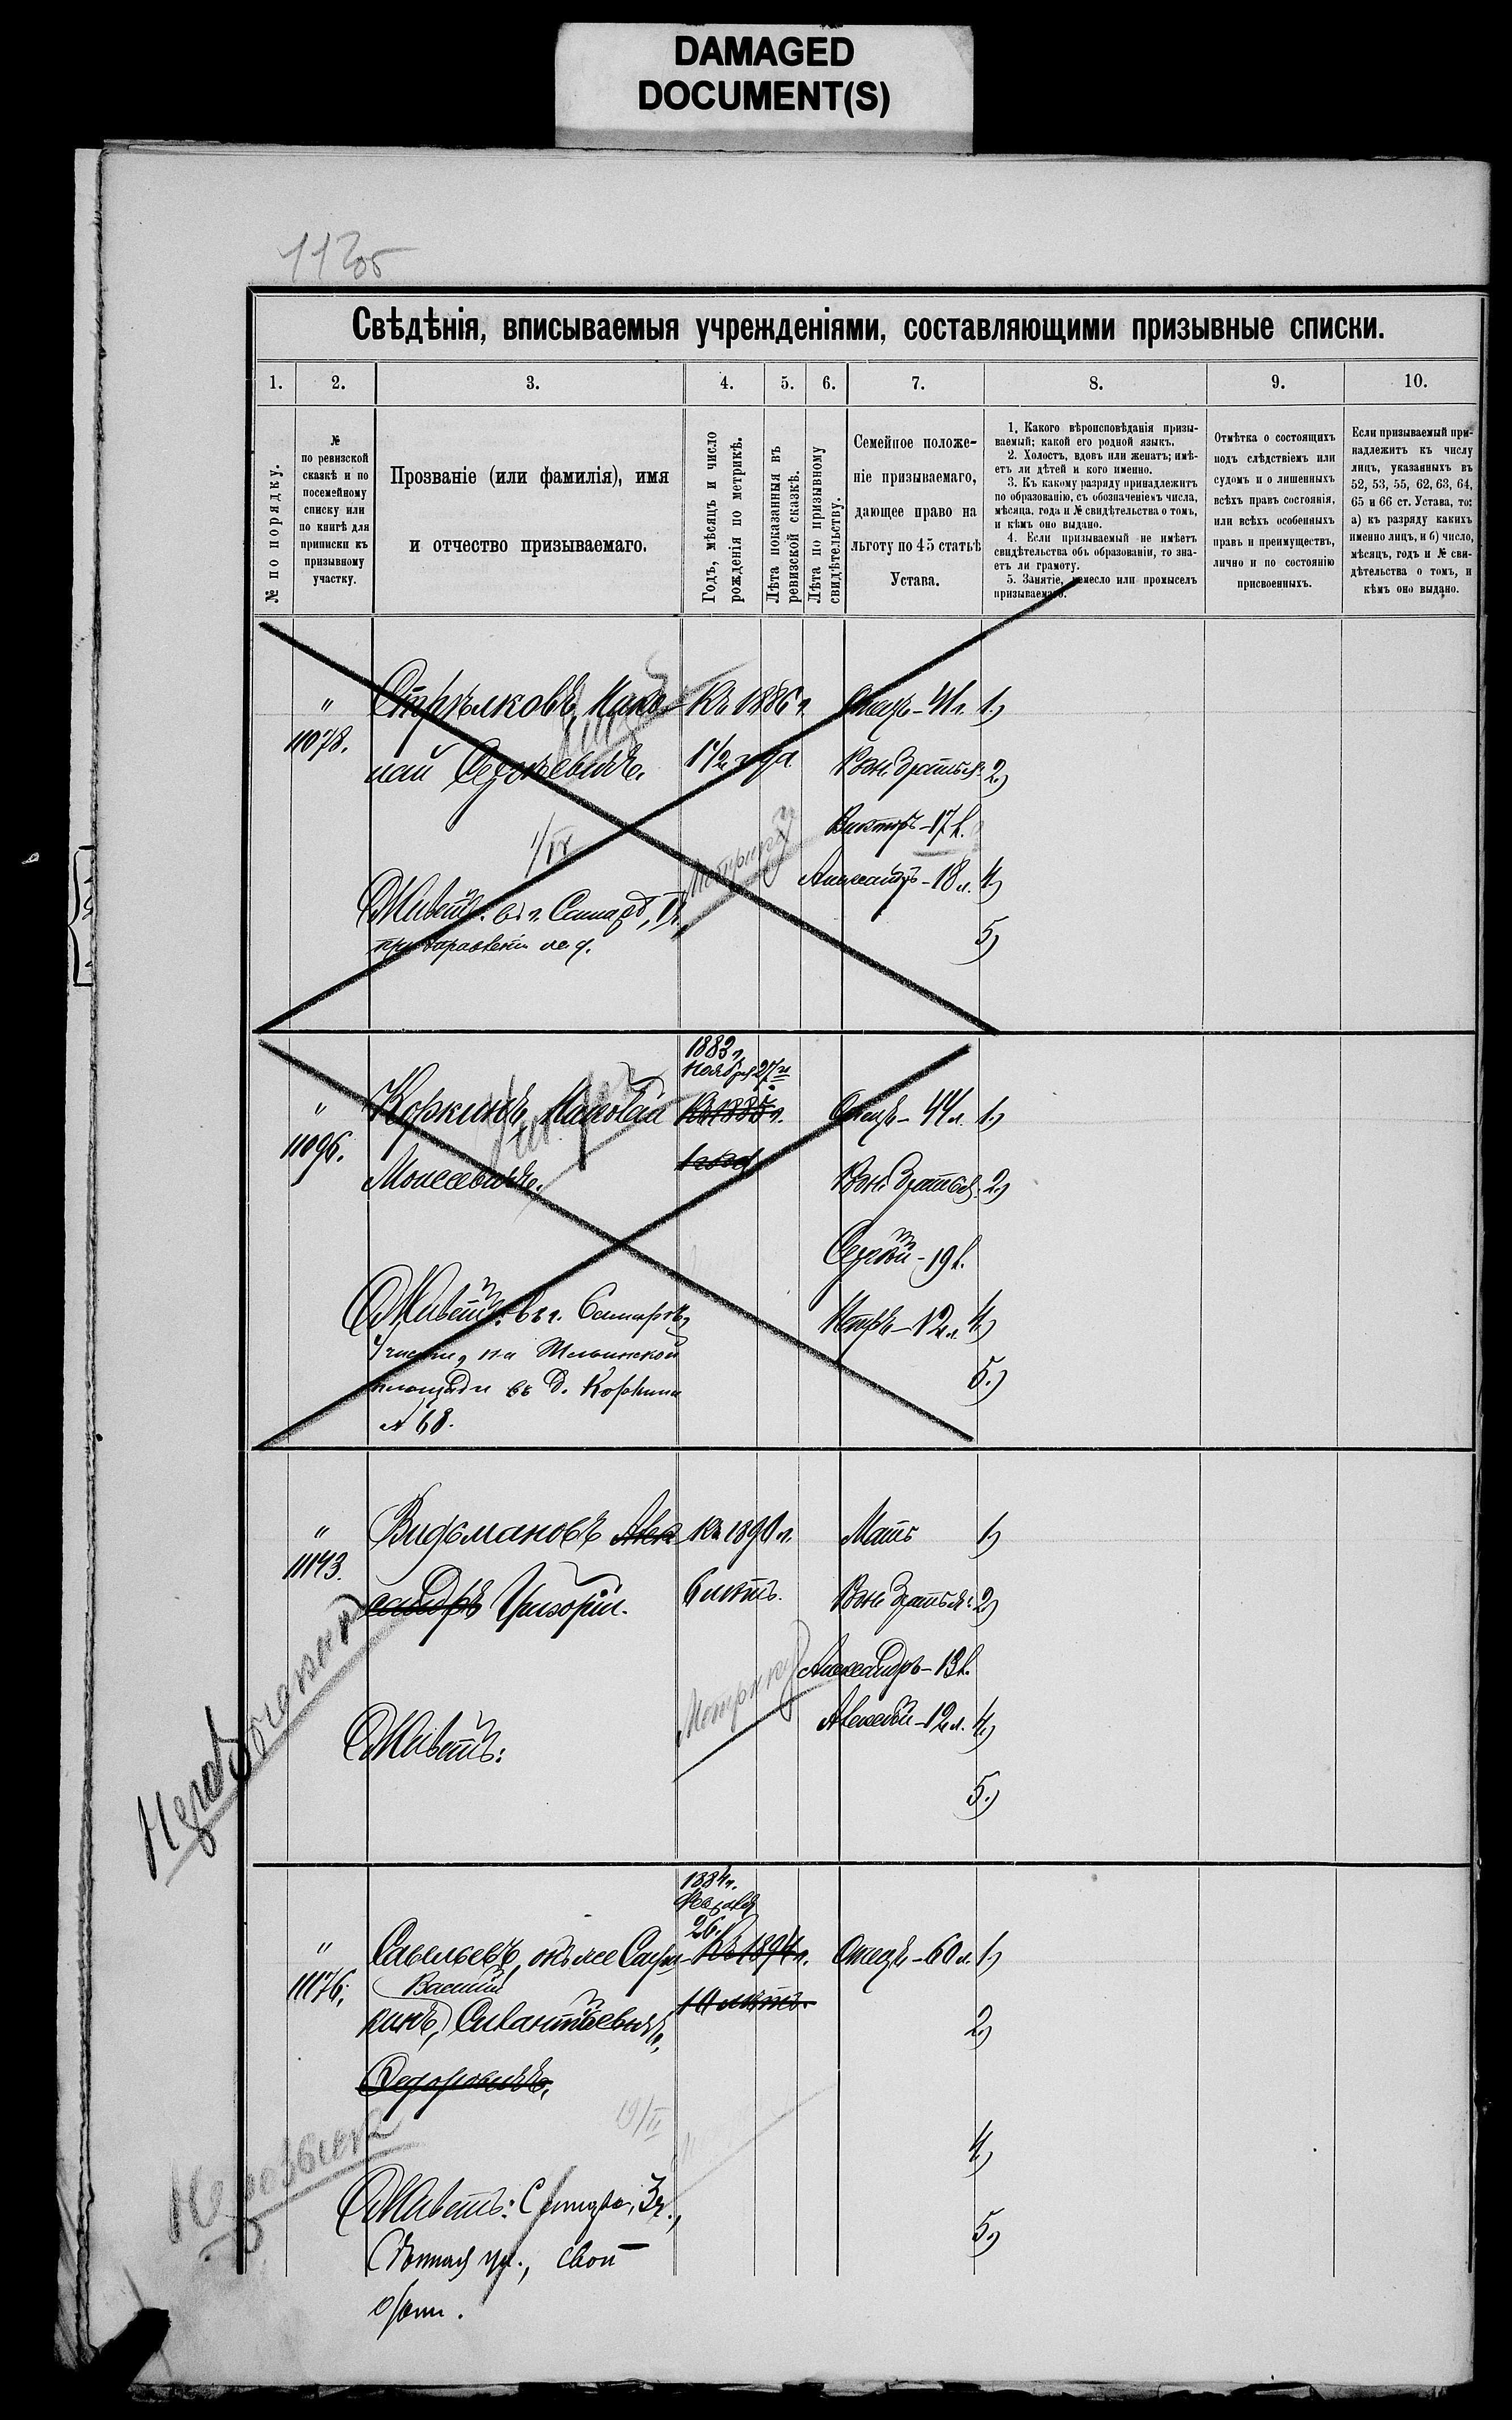 DAMAGED
DOCUMENT(S)
1135
Свѣдѣнія, вписываемыя учрежденіями, составляющими призывные списки.
1. 2. 3. 4. 5. 6. 7. 8. 9. 10.
№ по порядку.
№
по ревизской
сказкѣ и по
посемейному
списку или
по книгѣ для
приписки къ
призывному
участку.
Прозваніе (или фамилія), имя
и отчество призываемаго.
Годъ, мѣсяцъ и число
рожденія по метрикѣ.
Лѣта показанныя въ
ревизской сказкѣ.
Лѣта по призывному
свидѣтельству.
Семейное положе-
ніе призываемаго,
дающее право на
льготу по 45 статьѣ
Устава.
1. Какого вѣроисповѣданія призы-
ваемый; какой его родной языкъ.
2. Холостъ, вдовъ или женатъ; имѣ-
етъ ли дѣтей и кого именно.
3. Къ какому разряду принадлежитъ
по образованію, съ обозначеніемъ числа,
мѣсяца, года и № свидѣтельства о томъ,
и кѣмъ оно выдано.
4. Если призываемый не имѣетъ
свидѣтельства объ образованіи, то зна-
етъ ли грамоту.
5. Занятіе, ремесло или промыселъ
призываемаго.
Отмѣтка о состоящихъ
подъ слѣдствіемъ или
судомъ и о лишенныхъ
всѣхъ правъ состоянія,
или всѣхъ особенныхъ
правъ и преимуществъ,
лично и по состоянію
присвоенныхъ.
Если призываемый при-
надлежитъ къ числу
лицъ, указанныхъ въ
52, 53, 55, 62, 63, 64,
65 и 66 ст. Устава, то:
а) къ разряду какихъ
именно лицъ, и б) число,
мѣсяцъ, годъ и № сви-
дѣтельства о томъ, и
кѣмъ оно выдано.
" Стрѣлковъ, Нико- Къ 1886 г. Отецъ - 41 л. 1.)
11078. лай Сергѣевичъ. 1 1/2 года 2.)
Викторъ - 17 л.
Метрику Александръ - 18 л. 4.)
Живетъ: въ г. Самарѣ,
5.)
1883 г.
Ноября 27
" Коркинъ, Къ 1885 г. Отецъ - 44 л. 1.)
11096. Моисеевичъ. 1 годъ 2.)
Сергѣй - 19 л.
Живетъ: въ г. Самарѣ, Петръ - 12 л. 4.)
площади въ д. Коркина 5.)
№ 68.
" Видьмановъ Алек- Къ 1890 г. Мать 1.)
11143. сандръ Григорій. 6 лѣтъ. 2.)
Метрику Александръ - 13 л.
Живетъ: Алексѣй - 12 л. 4.)
5.)
1884 г.
Февраля
26.
" Савельевъ, онъ же Къ 1894 г. Отецъ - 60 л. 1.)
11176. Василій
кинъ, 10 лѣтъ. 2.)
Федоровичъ,
19/II
4.)
Живетъ: 3 ч., 5.)
ул., свой